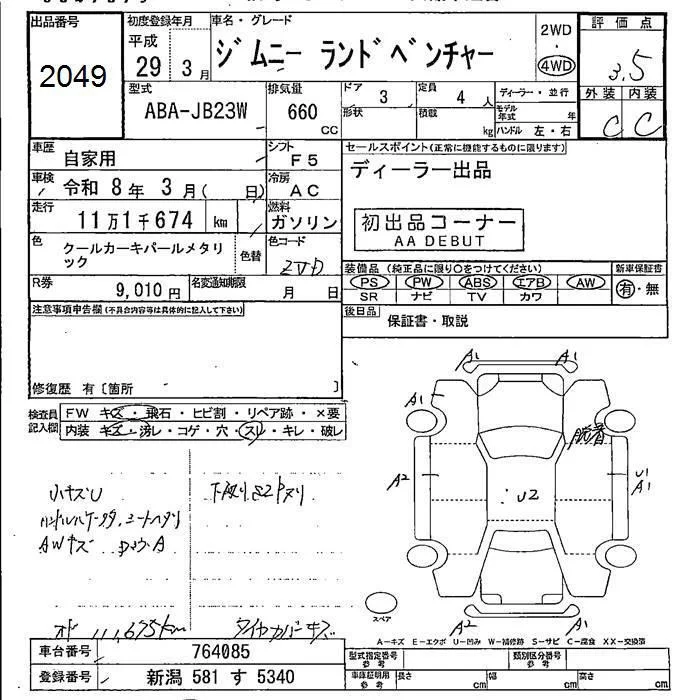 出品番号
2049
初度登録年月
平成
29 3月
車名・グレード
ジムニー ランドベンチャー
2WD
・
4WD
評価点
3.5
外装 内装
C C
型式
ABA-JB23W
排気量
660
CC
ドア 3
形状
定員 4 人
積載 kg
ディーラー・並行
モデル年式 年
ハンドル 左・右
車歴 自家用
シフト F5
車検 令和 8年 3月( 日)
冷房 AC
走行 11万1千674 km
燃料 ガソリン
色 クールカーキパールメタリック
色替
色コード ZVD
R券 9,010円
名変通知期限 月 日
セールスポイント(正常に機能するものに限ります)
ディーラー出品
初出品コーナー
AA DEBUT
装備品 (純正品に限り○をつけてください)
新車保証書
PS PW ABS エアB AW
有・無
SR ナビ TV カワ
後日品 保証書・取説
注意事項申告欄(不具合内容等は具体的に記入して下さい)
修復歴 有〔箇所 〕
検査員記入欄
FW キズ・飛石・ヒビ割・リペア跡・×要
内装 キズ・汚レ・コゲ・穴・スレ・キレ・破レ
小キズU
AWキズ
111,675km
タイヤカバーキズ
A1 A1
A1
脱着
A2
U2
U1
A1
A2 A1
スペア
A-キズ E-エクボ U-凹み W-補修跡 S-サビ C-腐食 XX-交換済
車台番号 764085
型式指定番号 参考
類別区分番号 参考
登録番号 新潟 581 す 5340
車庫証明用 参考
長さ cm
幅 cm
高さ cm